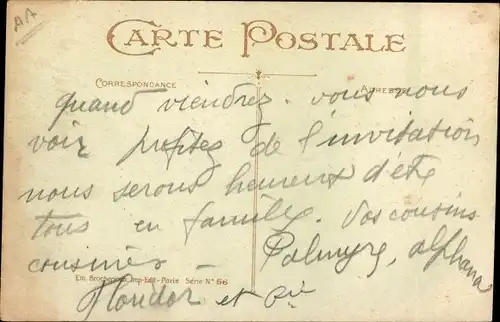 AA
CARTE POSTALE
CORRESPONDANCE
ADRESSE
quand viendrez. vous nous
voir profitez de l'invitation
nous serons heureux d'éte
tous en famille. Vos cousins
cousines - Palmyre, alphonse
Em. Imp-Edit-Paris Série N° 56
et Cie